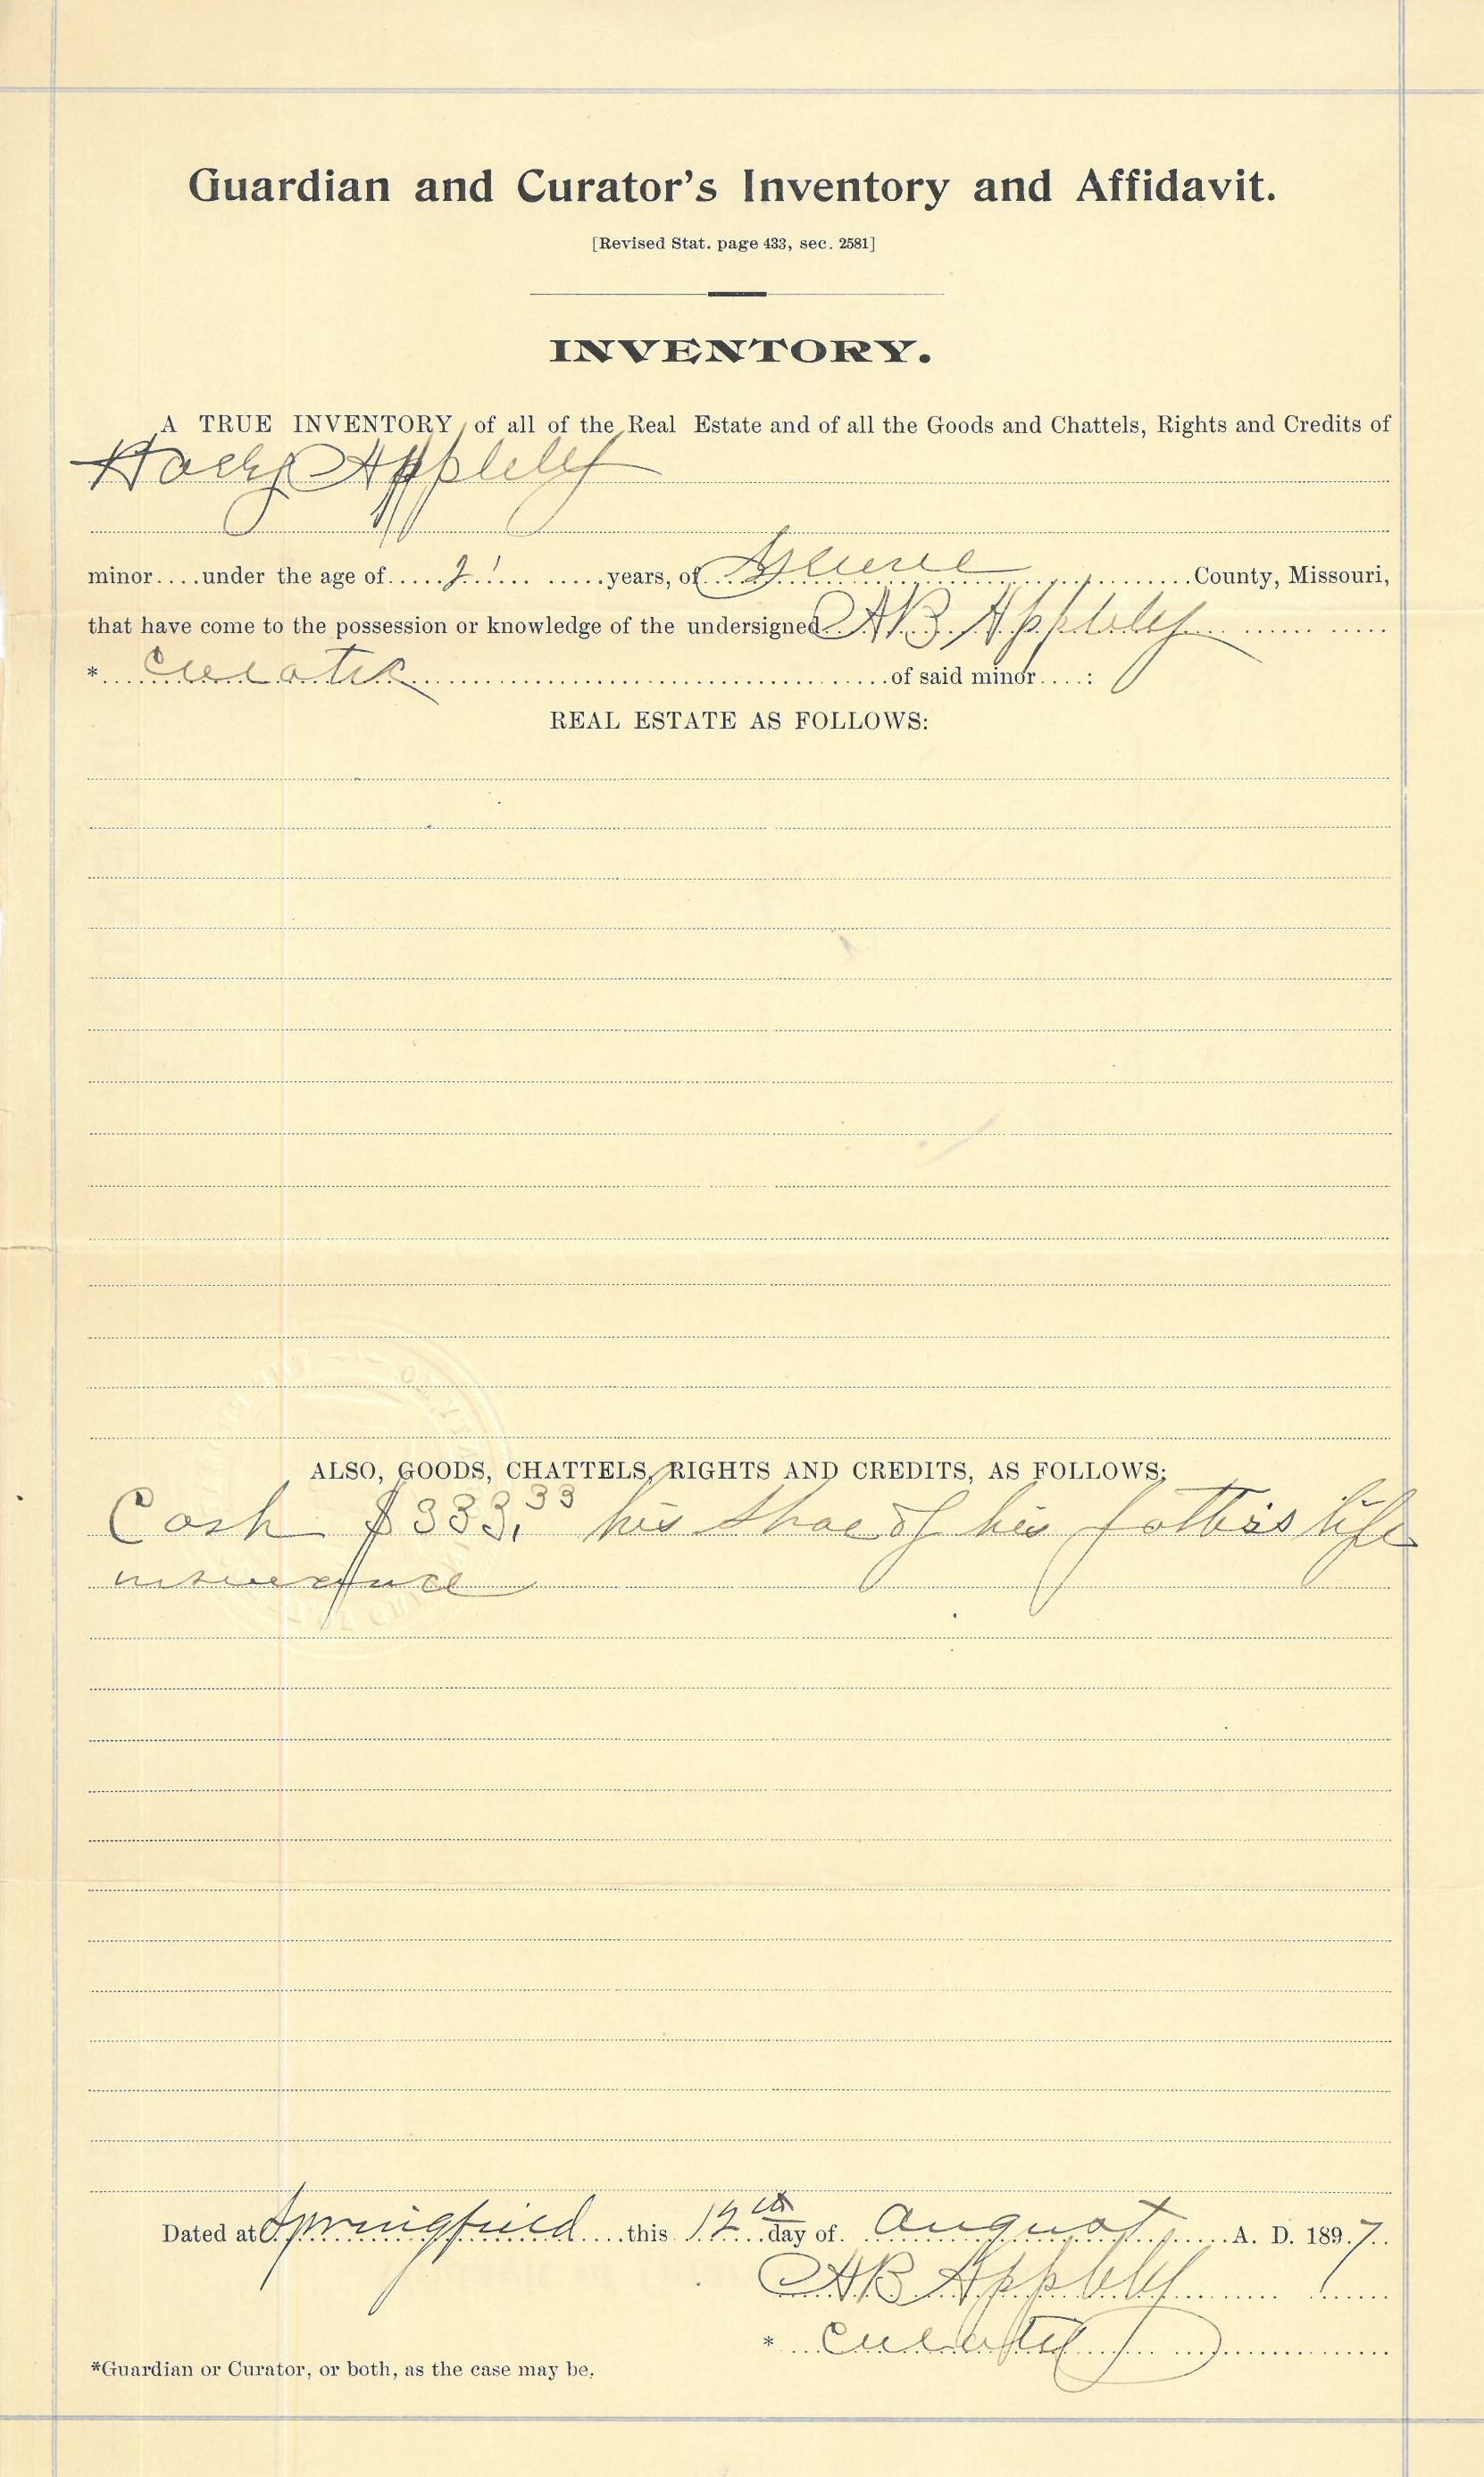 Guardian and Curator's Inventory and Affidavit.
[Revised Stat. page 433, sec. 2581]
INVENTORY.
A TRUE INVENTORY of all of the Real Estate and of all the Goods and Chattels, Rights and Credits of
Appleby
minor....under the age of 21 years, of Greene County, Missouri,
that have come to the possession or knowledge of the undersigned AB Appleby
* Curator of said minor....:
REAL ESTATE AS FOLLOWS:
ALSO, GOODS, CHATTELS, RIGHTS AND CREDITS, AS FOLLOWS:
Cash $333.33 his share of his father's life
insurance
Dated at Springfield this 12th day of August A. D. 1897.
AB Appleby
* Curator
*Guardian or Curator, or both, as the case may be.